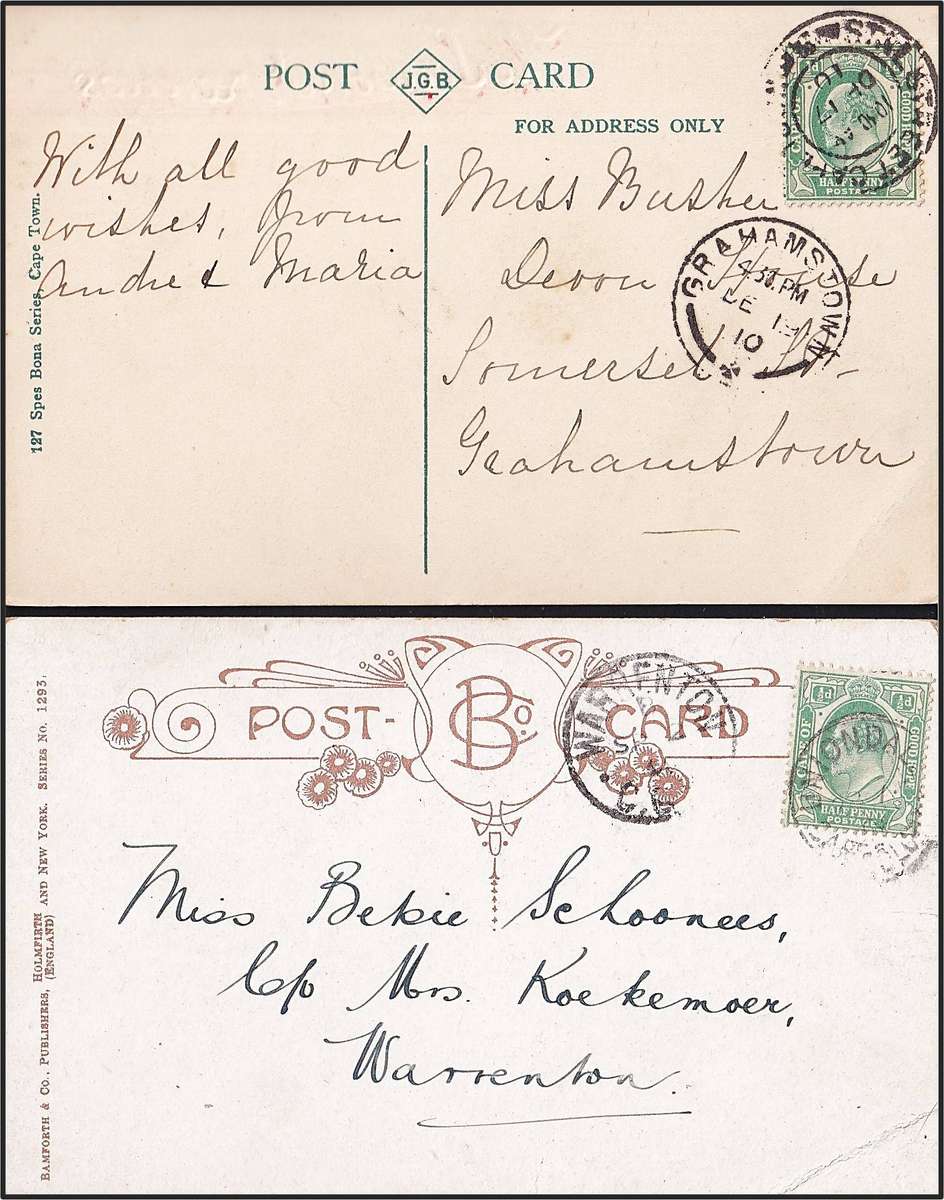 POST J.G.B. CARD
FOR ADDRESS ONLY
With all good
wishes, from
Andre & Maria
127 Spes Bona Series, Cape Town.
Miss Busher
Devon House
Somerset St.
Grahamstown
HALF PENNY
POSTAGE
GRAHAMSTOWN
PM
DE 19
10
POST- B Co. CARD
WARRENTON
½d ½d
GOOD HOPE
HALF PENNY
POSTAGE
Miss Bekie Schoonees,
C/o Mrs. Koekemoer,
Warrenton.
BAMFORTH & CO., PUBLISHERS, HOLMFIRTH AND NEW YORK. SERIES NO. 1293.
(ENGLAND)